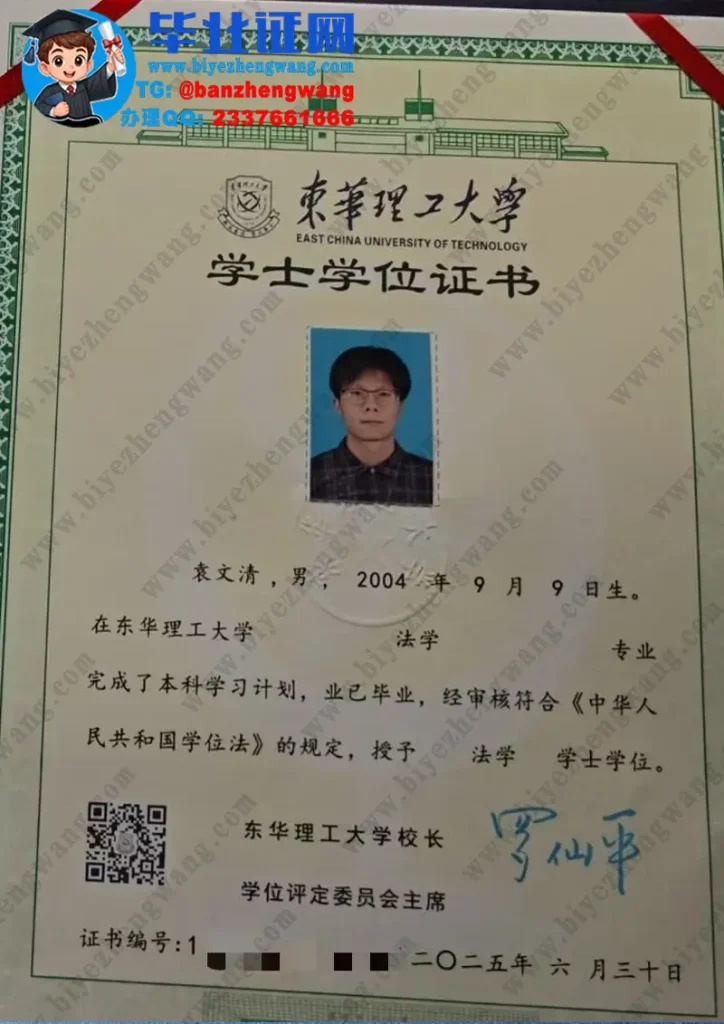 毕业证网
www.biyezhengwang.com
TG: @banzhengwang
办理QQ: 2337661666
東華理工大学
EAST CHINA UNIVERSITY OF TECHNOLOGY
学士学位证书
袁文清，男， 2004 年 9 月 9 日生。
在东华理工大学 法学 专业
完成了本科学习计划，业已毕业，经审核符合《中华人
民共和国学位法》的规定，授予 法学 学士学位。
东华理工大学校长 罗仙平
学位评定委员会主席
证书编号:1
二〇二五年 六 月三十日
www.biyezhengwang.com